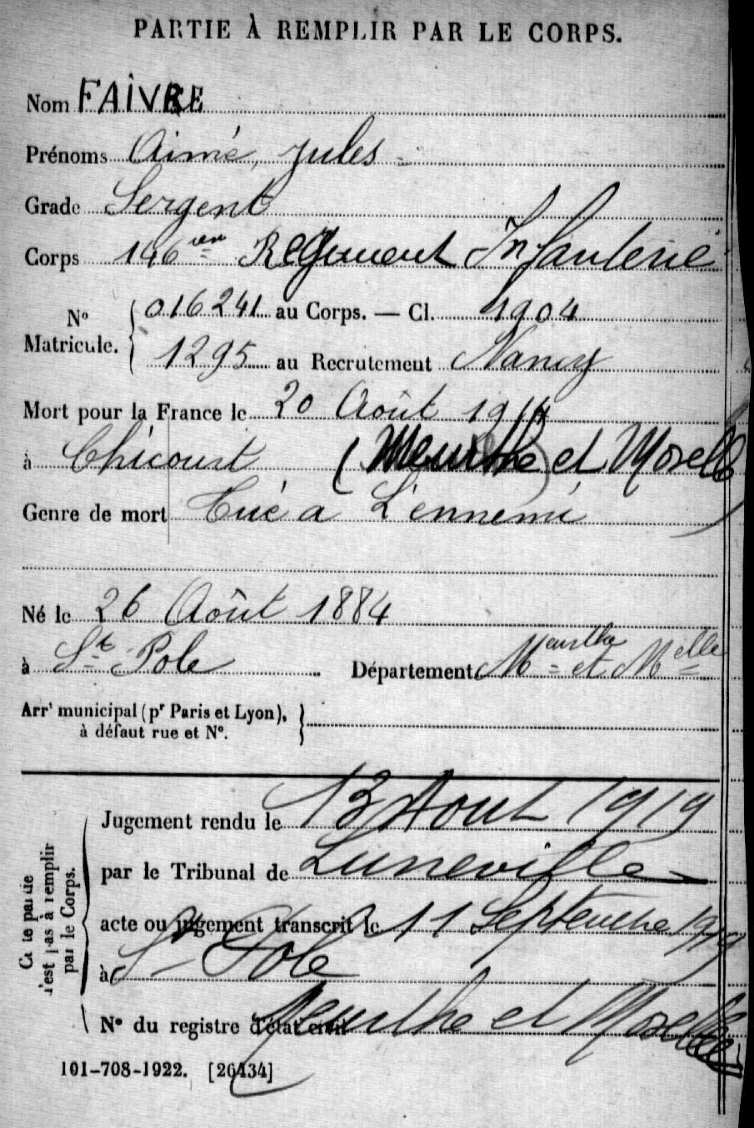 PARTIE À REMPLIR PAR LE CORPS.
Nom FAIVRE
Prénoms Aimé, Jules
Grade Sergent
Corps 146ème Régiment Infanterie
N° Matricule. { 016241 au Corps. — Cl. 1904
1295 au Recrutement Nancy
Mort pour la France le 20 Août 1914
à Chicourt (Meurthe et Moselle)
Genre de mort Tué à L'ennemi
Né le 26 Août 1884
à St Pole Département Meurthe et Melle
Arrt municipal (pr Paris et Lyon), à défaut rue et N°. }
Cette partie n'est pas à remplir par le Corps.
Jugement rendu le 13 Aout 1919
par le Tribunal de Luneville
acte ou jugement transcrit le 11 Septembre 1919
à St Pole
N° du registre d'état civil Meurthe et Moselle
101-708-1922. [26434]